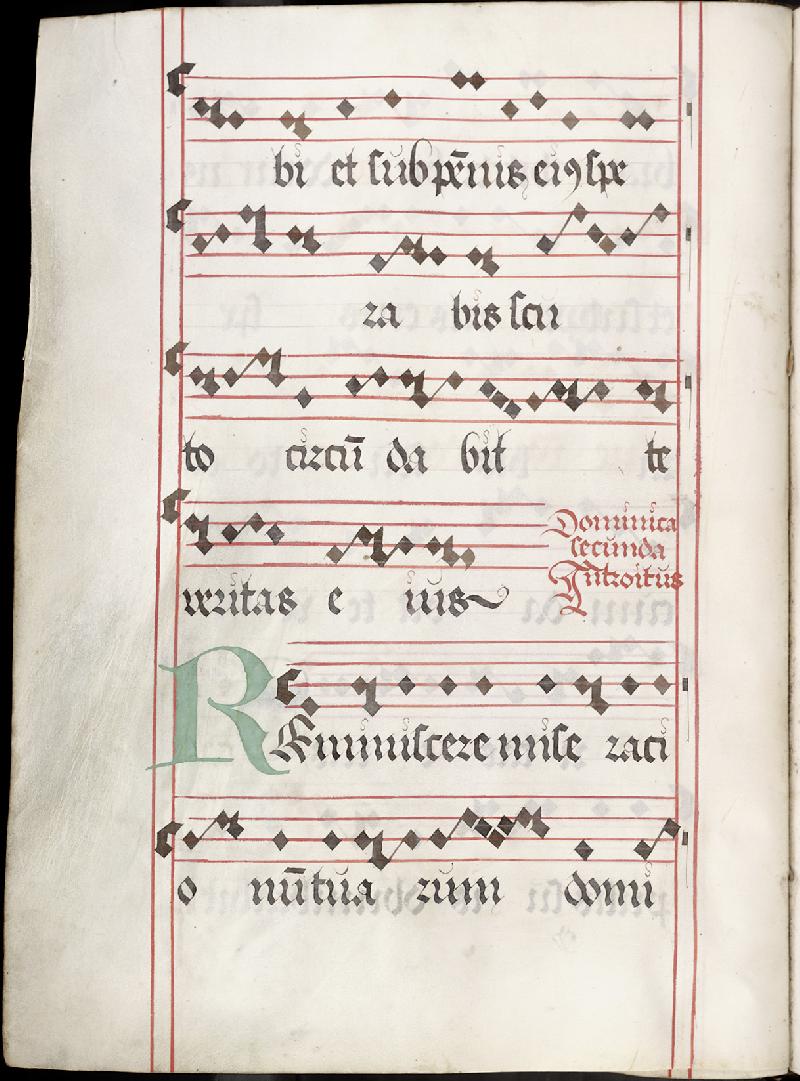 bi et sub pēnis eiꝰ spe
ra bis scu
to circū da bit te
veritas e ius
Dominica
secunda
Introitus
REminiscere mise raci
o nū tua rum domi